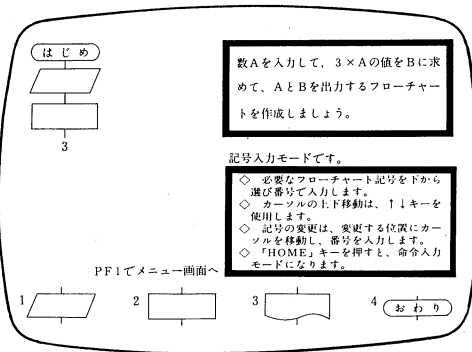 はじめ
3
数Aを入力して、3×Aの値をBに求
めて、AとBを出力するフローチャー
トを作成しましょう。
記号入力モードです。
◇ 必要なフローチャート記号を下から
選び番号で入力します。
◇ カーソルの上下移動は、↑↓キーを
使用します。
◇ 記号の変更は、変更する位置にカー
ソルを移動し、番号を入力します。
◇ 「HOME」キーを押すと、命令入力
モードになります。
PF1でメニュー画面へ
1
2
3
4
おわり